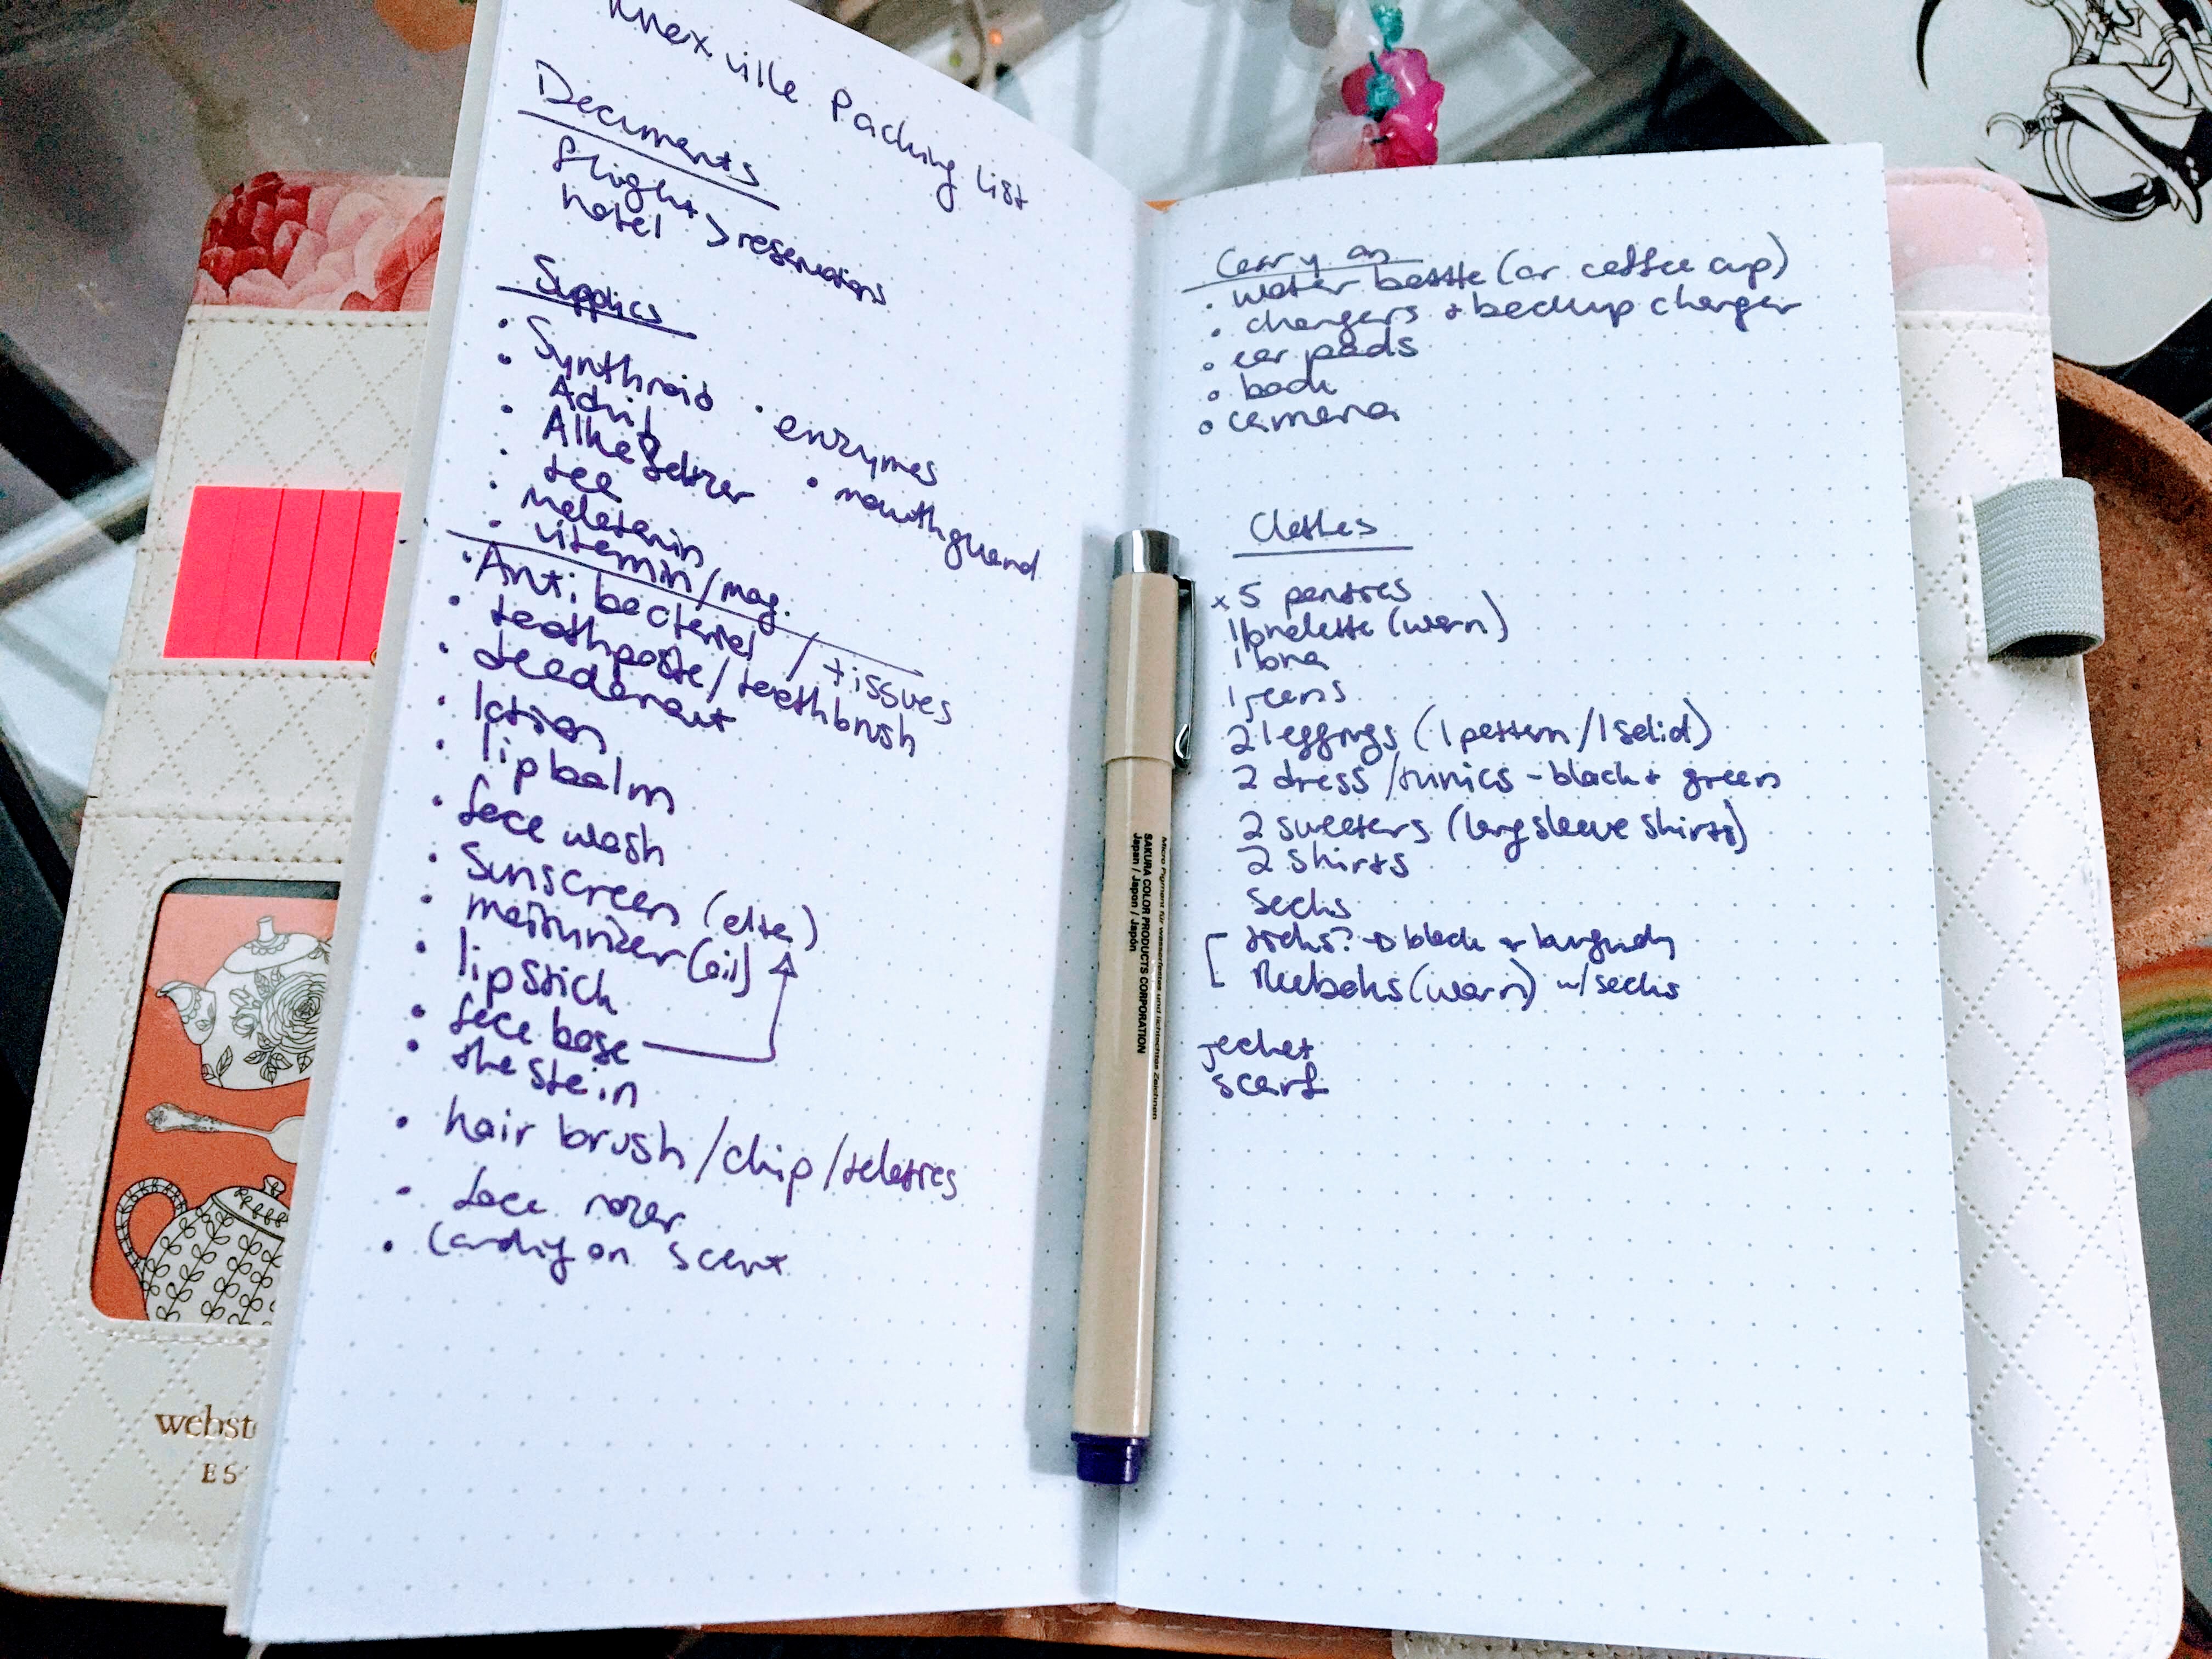 Knoxville Packing List
Documents
flight
hotel > reservations
Supplies
• Synthroid
• Advil
• Alka Seltzer
• tea
• Melatonin
• vitamin/mag.
• enzymes
• mouthguard
• Anti bacterial / tissues
• toothpaste/toothbrush
• deodorant
• lotion
• lip balm
• face wash
• Sunscreen (elta)
• moisturizer (oil)
• lipstick
• face base
• the stein
• hair brush/clip/
• face razor
• Cardigan scent
Carry on
• water bottle (or coffee cup)
• chargers + backup charger
• ear pods
• book
• camera
Clothes
x 5 panties
1 bralette (worn)
1 bra
1 jeans
2 leggings (1 pattern/1 solid)
2 dress/tunics - black + green
2 sweaters (long sleeve shirts)
2 shirts
Socks
→ black + burgundy
Reeboks (worn) w/socks
jacket
scarf
Micro Pigment für wasserfestes und lichtechtes Zeichnen
SAKURA COLOR PRODUCTS CORPORATION
Japan / Japon / Japón
webst
ES